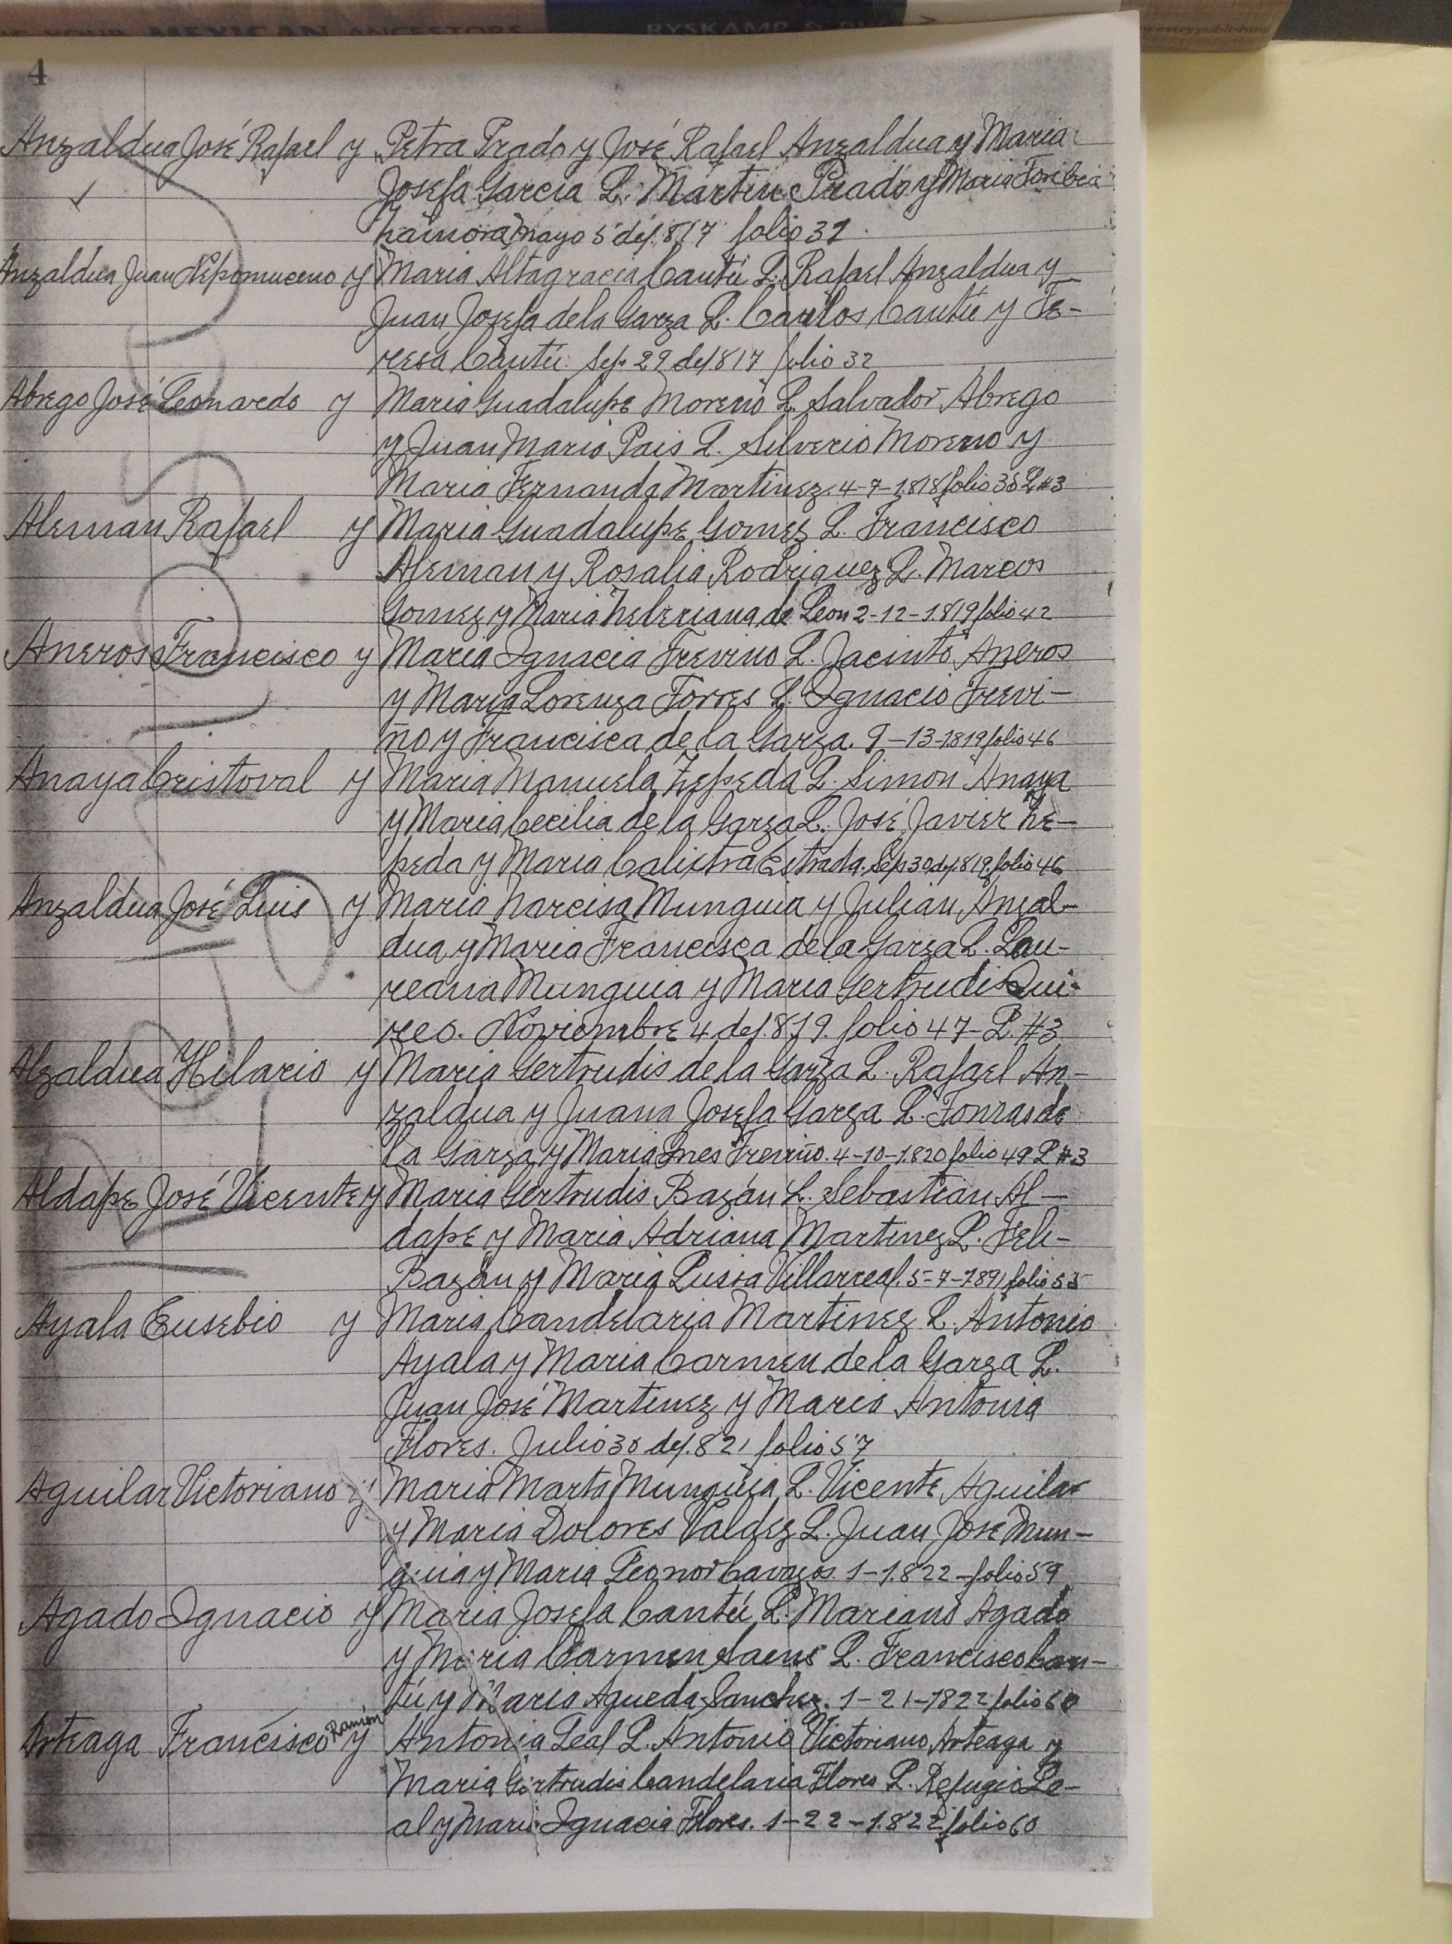 MEXICAN ANCESTORS RYSKAMP &
ancestrypublishing
4
Anzaldua José Rafael y Petra Prado y José Rafael Anzaldua y Maria
Josefa Garcia L. Martin Prado y Maria Toribia
Zamora mayo 5 de 1.817 folio 32
Anzaldua Juan Nepomuceno y Maria Altagracia Cantú L. Rafael Anzaldua y
Juan Josefa de la Garza L. Carlos Cantú y Te-
resa Cantú. Sep. 29 de 1817 folio 32
Abrego José Leonardo y Maria Guadalupe Moreno L. Salvador Abrego
y Juan Maria Pais L. Silverio Moreno y
Maria Fernanda Martinez. 4-7-1.818 folio 36 L #3
Aleman Rafael y Maria Guadalupe Gomez L. Francisco
Aleman y Rosalia Rodriguez L. Marcos
Gomez y Maria de Leon 2-12-1.819 folio 42
Aneros Francisco y Maria Ignacia Trevino L. Jacinto Aneros
y Maria Lorenza Torres L. Ignacio Trevi-
ño y Francisca de la Garza. 9-13-1819 folio 46
Anaya Cristoval y Maria Manuela Zepeda L. Simon Anaya
y Maria Cecilia de la Garza L. José Javier Ze-
peda y Maria Calistra Estrada. Sep 30 de 1.819. folio 46
Anzaldua José Luis y Maria Narcisa Munguia y Julian Anzal-
dua y Maria Francisca de la Garza L. Lau-
reana Munguia y Maria Gertrudis Qui-
roo. Noviembre 4 de 1.819 folio 47-L. #3
Alzaldua Hilario y Maria Gertrudis de la Garza L. Rafael An-
zaldua y Juana Josefa Garza L. Tomas de
la Garza y Maria Ines Treviño. 4-10-1.820 folio 49 L #3
Aldape José Vicente y Maria Gertrudis Bazán L. Sebastian Al-
dape y Maria Adriana Martinez L. Feli-
Bazán y Maria Lusia Villarreal. 5-7-1.891 folio 55
Ayala Eusebio y Maria Candelaria Martinez L. Antonio
Ayala y Maria Carmen de la Garza L.
Juan José Martinez y Maria Antonia
Flores. Julio 30 de 1.821 folio 57
Aguilar Victoriano y Maria Marta Munguia L. Vicente Aguilar
y Maria Dolores Valdez L. Juan José Mun-
guia y Maria Leonor Cavazos 1-1.822-folio 59
Agado Ignacio y Maria Josefa Cantú L. Mariano Agado
y Maria Carmen Saens L. Francisco Can-
tú y Maria Agueda Sanchez. 1-21-1822 folio 60
Arteaga Francisco Ramon y Antonia Leal L. Antonio Victoriano Arteaga y
Maria Gertrudis Candelaria Flores L. Refugio Le-
al y Maria Ignacia Flores. 1-22-1.822 folio 60